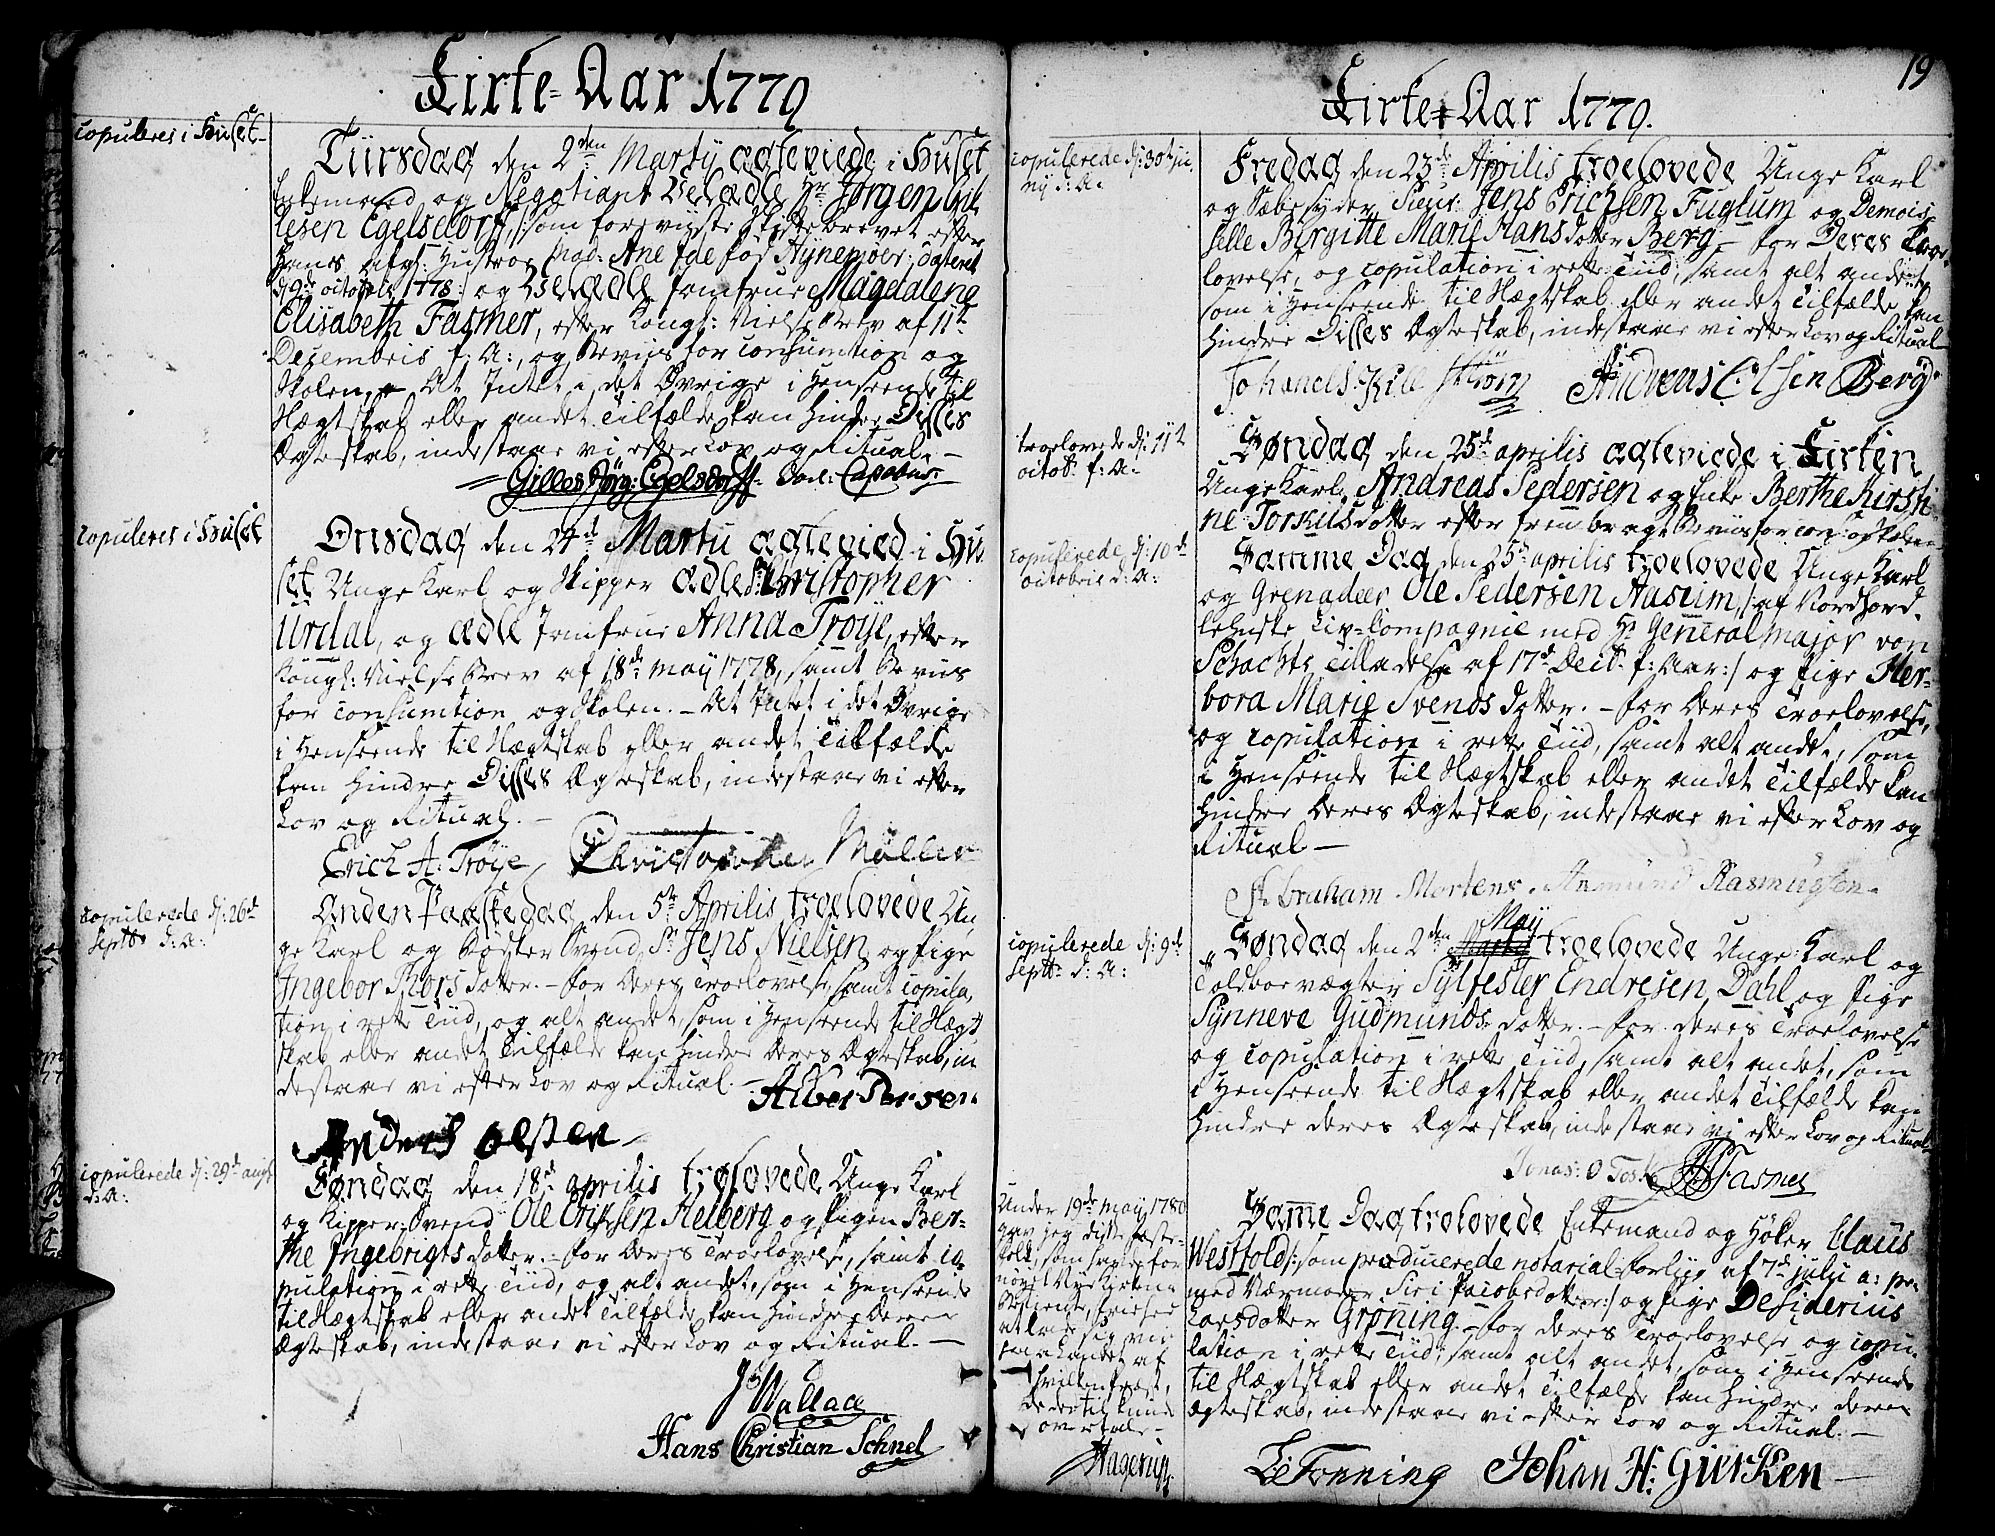 Kirke-Aar 1779
copuleres i Huset
Tiirsdag den 2den Martij ægteviede i Huset
Enkemand og Negotiant Velædle Hr Jørgen Gil-
lesen Egelsdorf /: som foreviiste Skiftebrevet efter
hans afg: Hustroe Mad: Ane Ide fød Hynemøer, dateret
d: 9de octobris 1778 :/ og Velædle Jomfrue Magdalene
Elisabeth Fasmer, efter Kongl: Vielse Brev af 11te
Decembris f: A:, og Beviis for consumtion og
Skolen. At Intet i det Øvrige i Henseende til
Slægtskab eller andet Tilfælde kan hindre Disses
Ægteskab, indestaae vi efter Lov og Ritual. -
Gilles Jørg: Egelsdorff
copuleres i Huset
Onsdag den 24de Martij ægtevied i Hu-
set Unge Karl og Skipper ædle Sr: Christopher
Urdal, og ædle Jomfrue Anna Trøye, efter
Kongl: Vielse Brev af 18de may 1778, samt Beviis
for consumtion og Skolen. - At Intet i det Øvrige
i Henseende til Slægtskab eller andet Tilfælde
kan hindre Disses Ægteskab, indestaae vi efter
Lov og Ritual. -
Erich A: Trøye Christopher Møller
copulerede d: 26de
septbr d: A:
Anden Paaskedag den 5te Aprilis troelovede Un-
ge Karl og Bødker Svend Sr Jens Nielsen og Pige
Ingebor Thors dotter. - for Deres Troelovelse, samt copula-
tion i rette Tiid, og alt andet, som i Henseende til Slægt-
skab eller andet Tilfælde kan hindre Deres Ægteskab, in-
destaae vi efter Lov og Ritual. -
Anders Olsen
copulerede d: 29de aug:
d: A:
Søndag den 18de aprilis trolovede Unge Karl
og Kipper-Svend Ole Erichsen Helberg og Pigen Ber-
the Ingebrigts dotter. - for Deres Troelovelse, samt co-
pulation i rette Tiid, og alt andet, som i Henseende
til Slægtskab eller andet Tilfælde kan hindre Deres
Ægteskab, indestaae vi efter Lov og Ritual. -
Wallace
Hans Christian Schnel
19
Kirke-Aar 1779.
copulerede d: 30te Ju-
nij d: A:
Fredag den 23de Aprilis troelovede Unge Karl
og Sæbesyder Sieur: Jens Erichsen Fuglum og Demoi-
selle Bergitte Marie Hans dotter Berg - for Deres Troe-
lovelse, og copulation i rette Tiid, samt alt andet,
som i Henseende til Slægtskab eller andet Tilfælde kan
hindre Disses Ægteskab, indestaae vi efter Lov og Ritual
Andreas Olsen Berg
troelovede d: 11te
octob: f: A:
Søndag den 25de aprilis ægteviede i Kirken
Unge Karl Andreas Pedersen og Enke Berthe Kirsti-
ne Torkils dotter efter frembragt Beviis for cons: og Skolen
copulerede d: 10de
octobris d: A:
Samme Dag den 25de aprilis troelovede Unge Karl
og Grenadeer Ole Pedersen Aaseim /: af Nordhord-
lehnske Liv-Compagnie med Hr General major von
Schachts Tilladelse af 17de Decb: f: Aar :/ og Pige Her-
bora Marie Svends dotter. - for Deres Troelovelse,
og copulation i rette Tiid, samt alt andet, som
i Henseende til Slægtskab eller andet Tilfælde kan
hindre Deres Ægteskab, indestaae vi efter Lov og
Ritual -
Abraham Mortens. Aamund Rasmussen.
copulerede d: 9de
septbr: d: A:
Søndag den 2den May troelovede Unge Karl og
Toldboevægter Sylfester Endresen Dahl og Pige
Synneve Gudmunds dotter. - for deres Troelovelse
og copulation i rette Tiid, samt alt andet, som
i Henseende til Slægtskab eller andet Tilfælde kan
hindre deres Ægteskab, indestaae vi efter Lov og Ritual
Jonas: O Fasmer
Under 19de may 1780
gav jeg disse Fæste-
Folk,
atlade sig vie
paa Landet af
hvilken Præst,
de dertil kunde
overtale
Hagerup
Samme Dag trolovede Enkemand og Høker Claus
Westfold /: som producerede notarial-Forliig af 7de julii a: p:
med Værmoder Siri Jacobsdotter :/ og Pige Desiderius
Larsdotter Grøning - for deres Troelovelse og copu-
lation i rette Tiid, samt alt andet, som i Henseende
til Slægtskab eller andet Tilfælde kan hindre deres
Ægteskab, indestaae vi efter Lov og Ritual. -
Tonning Johan H: Gierken